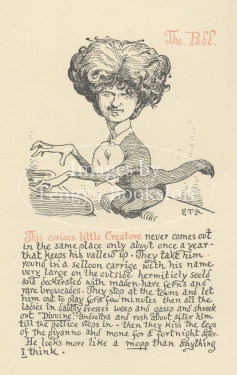 The Padd.
E.T.R.
This curious little Creature never comes out
in the same place only about once a year-
that keeps his vallew up. They take him
round in a selloon carrige with his name
very large on the outside hermiticly seeld
and deckerated with maden-hare ferns and
rare brovcades. They stop at the towns and let
him out to play for a few minutes then all the
ladies in balldresses weep and gassp and shreek
out "Divvine" andsettra and rush about after him
till the pollice steps in - then they kiss the legs
of the piyanno and mone for a fortnight after.
He looks more like a mopp than anything
I think.